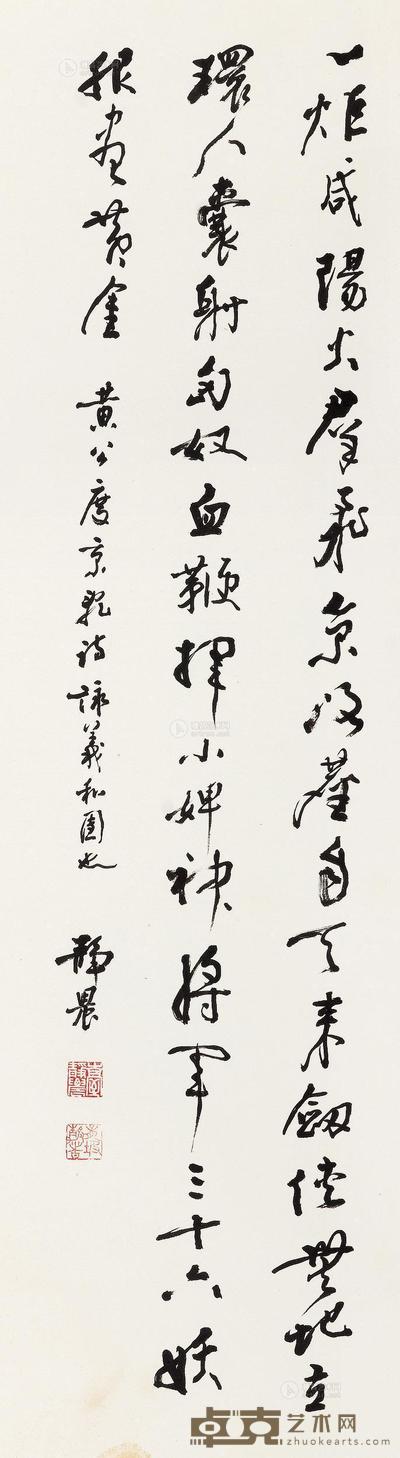 一炬咸陽火群飛京洛塵自天來劍俠無地立
環人囊射匈奴血鞭揮小婢神將軍三十六妖
盡黃金 黃公度京亂詩詠義和團也 靜農
卓克艺术网
zhuokearts.com